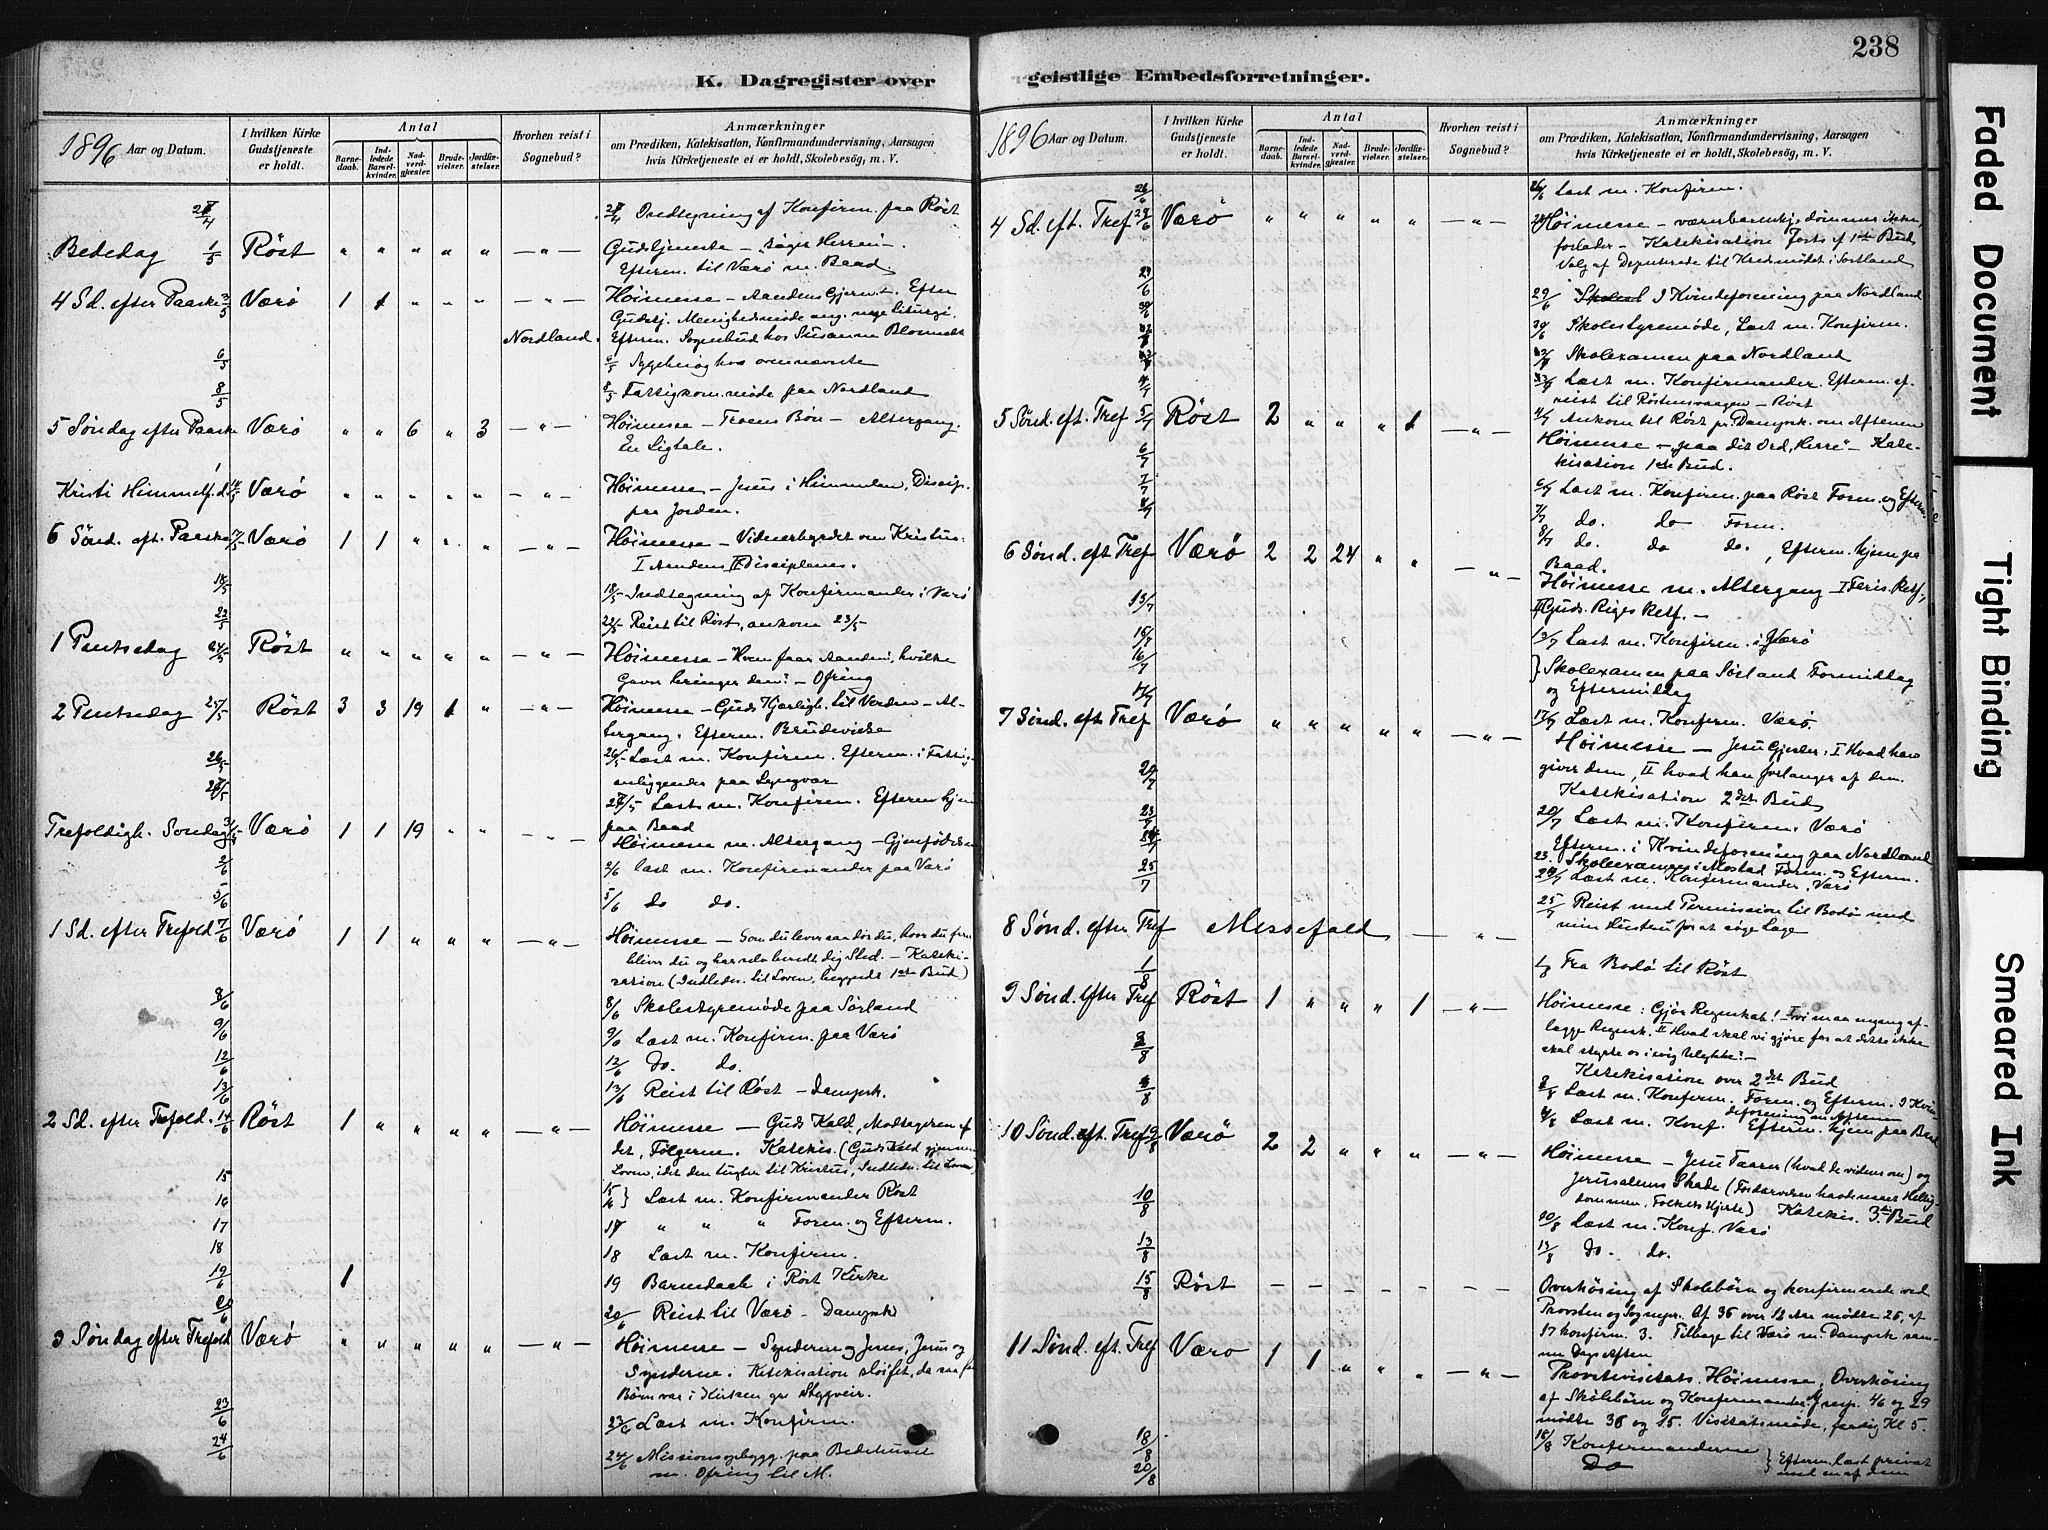 238
K. Dagregister over
geistlige Embedsforretninger.
1896 Aar og Datum.
I hvilken Kirke Gudstjeneste er holdt.
Antal
Barnedaab.
Indledede Barselkvinder.
Nadverdgjester.
Brudevielser.
Jordfæstelser.
Hvorhen reist i Sognebud?
Anmærkninger
om Prædiken, Katekisation, Konfirmandundervisning, Aarsagen
hvis Kirketjeneste ei er holdt, Skolebesøg, m. V.
Indtegning af Konfirm. paa Røst
Bededag 1/5 Røst " " " " " — " — Gudstjeneste — søger Herren —
Efterm. til Værø m. Baad
4 Sd. efter Paaske 3/5 Værø 1 1 " " " — " — Høimesse — Aandens Gjern. Efter
Gudstj. Menighedsmøde ang. nye Liturgi.
Nordland. Efterm. Sognebud hos Susanna
6/5 6/5 Sygebesøg hos ovennævnte
8/5 8/5 Fattigkom.møde paa Nordland
5 Søndag efter Paaske Værø " " 6 " 3 — " — Høimesse — Troens Bøn — Altergang.
En Ligtale.
Kristi Himmelf.d. 14/5 Værø " " " " " — " — Høimesse — Jesus i Himmelen, Discip.
paa Jorden.
6 Sønd. eft. Paaske 17/5 Værø 1 1 " " " — " — Høimesse — Vidnesbyrdet om Kristus:
I Aandens II Disciplenes.
18/5 18/5 Indtegning af Konfirmander i Værø
22/5 22/5 Reist til Røst, ankom 23/5
1 Pintsedag 24/5 Røst " " " " " — " — Høimesse — Hvem faar Aanden, hvilke
Gaver bringer den? — Ofring
2 Pintsedag 25/5 Røst 3 3 19 1 " — " — Høimesse — Guds Kjærligh. til Verden — Al-
tergang. Efterm. Brudevielse
26/5 26/5 Læst m. Konfirm. Efterm. i Fattig-
anliggender paa Lyngvær
27/5 27/5 Læst m. Konfirm. Efterm hjem
paa Baad
Trefoldigh. Søndag 31/5 Værø 1 1 19 " " — " — Høimesse m. Altergang — Gjenfødelsen
2/6 2/6 læst m. Konfirmander paa Værø
5/6 5/6 do do.
1 Sd. efter Trefold 7/6 Værø 1 1 " " " — " — Høimesse — Som du lever saa dør du, hvor du
bliver du og har selv beredt dig Sted. — Kateki-
sation (Indledn. til Loven, begyndt 1ste Bud)
8/6 8/6 Skolestyremøde paa Sørland
9/6 9/6 Læst m. Konfirm. paa Værø
12/6 12/6 Do. do.
13/6 13/6 Reist til Røst — Dampsk.
2 Sd. efter Trefold. 14/6 Røst 1 " " " " — " — Høimesse — Guds Kald, Modtageren af
det, Følgerne. Katekis. (Guds Kald gjennem
Loven, idet den tugter til Kristus, Indledn. til Loven)
15 15
16 16 } Læst m. Konfirmander Røst
17 17 " " " Form. og Efterm.
18 18 Læst m. Konfirm.
19/6 1 19 Barnedaab i Røst Kirke
20/6 20/6 Reist til Værø — Dampsk
3 Søndag efter Trefold Værø " " " " " — " — Høimesse — Synderen og Jesus, Jesus og
Synderne. Katekisation sløifet, da
Børn var i Kirken gr Styggveir.
23/6 23/6 Læst m. Konfirm.
24/6 24/6 Missionsopbygg. paa Bedehuset
m. Ofring til M.
1896 Aar og Datum.
I hvilken Kirke Gudstjeneste er holdt.
Antal
Barnedaab.
Indledede Barselkvinder.
Nadverdgjester.
Brudevielser.
Jordfæstelser.
Hvorhen reist i Sognebud?
Anmærkninger
om Prædiken, Katekisation, Konfirmandundervisning, Aarsagen
hvis Kirketjeneste ei er holdt, Skolebesøg, m. V.
26/6 26/6 Læst m. Konfirm.
4 Sd. eft. Tref 28/6 Værø " " " " " — " — Høimesse — værer barmhj., dømmer ikke,
forlader — Katekisation Forts af 1ste Bud
Valg af Deputerede til Kredsmødet i Sortland
29/6 29/6 I Kvindeforening paa Nordland
30/6 30/6 Skolestyremøde, Læst m. Konfirm.
Skolexamen paa Nordland
Læst m. Konfirmander. Efterm. af-
reist til Røst
4/7 4/7 Ankom til Røst pr Dampsk. om Aftenen
5 Sønd. eft. Tref 5/7 Røst 2 " " " 1 — " — Høimesse — „paa dit Ord, Herre" — Kate-
kisation 1ste Bud.
6/7 6/7 Læst m. Konfirm. paa Røst Form. og Efterm.
7/7 7/7 do. do Form.
8/7 8/7 do. do do. , Efterm. hjem pa
Baad.
6 Sønd. eft Tref Værø 2 2 24 " " — " — Høimesse m. Altergang — I Feris. Retf.,
II Guds Riges Retf. —
13/7 13/7 Læst m. Konfirm. i Værø
15/7
16/7 } Skolexamen paa Sørland Formiddag
og Eftermiddag
17/7 17/7 Læst m. Konfirm. Værø.
7 Sønd. eft Tref Værø " " " " " — " — Høimesse — Jesu Gjester: I Hvad han
giver dem, II hvad han forlanger af dem.
Katekisation 2det Bud
20/7 20/7 Læst m. Konfirm. Værø
Efterm. i Kvindeforening paa Nordland
23/7 23. Skoleexamen i Mostad Form. og Efterm.
24/7 24/7 Læst m. Konfirmander, Værø
25/7 25/7 Reist med Permission til Bodø med
min Hustru for at søge Læge
8 Sønd. efter Tref Messefald — " —
1/8 1/8 Fra Bodø til Røst
9 Sønd. efter Tref Røst 1 " " " 1 — " — Høimesse: Gjør Regnskab! — I vi maa engang af-
lægge Regnsk. II Hvad skal vi gjøre for at dette ikke
skal styrte os i evig Ulykke? —
Katekisation over 2det Bud
3/8 3/8 Læst m. Konfirm. Form. og Efterm. I Kvin-
deforening om Aftenen
4/8 4/8 Læst m. Konf. Efterm. hjem paa Baad
10 Sønd. eft. Tref 9/8 Værø 2 2 " " " — " — Høimesse — Jesu Taarer (hvad de vidner om) og
Jerusalems Skade (Fordærvelsen havde naaet Hellig-
dommen, Folkets Hjerte) Katekis. 3die Bud
10/8 10/8 Læst m. Konf. Værø
13/8 13/8 Do. do.
15/8 Røst — — — — — — Overhøring af Skolebørn og konfirmerede ved
Provsten og Sognepr. Af 36 over 12 Aar mødte 26, af
17 konfirm. 3. Tilbage til Værø m. Dampsk sam-
me Dags Aften
11 Sønd. eft. Tref Værø 1 1 " " " — " — Provstevisitats. Høimesse, Overhøring
af Skolebørn og Konfirmander. Af resp. 46 og 29
mødte 36 og 15. Visitatsmøde, færdig Kl 5.
18/8 18/8 Konfirmanderne } Efterm. læst privat
20/8 Do } med en af dem
Faded Document
Tight Binding
Smeared Ink